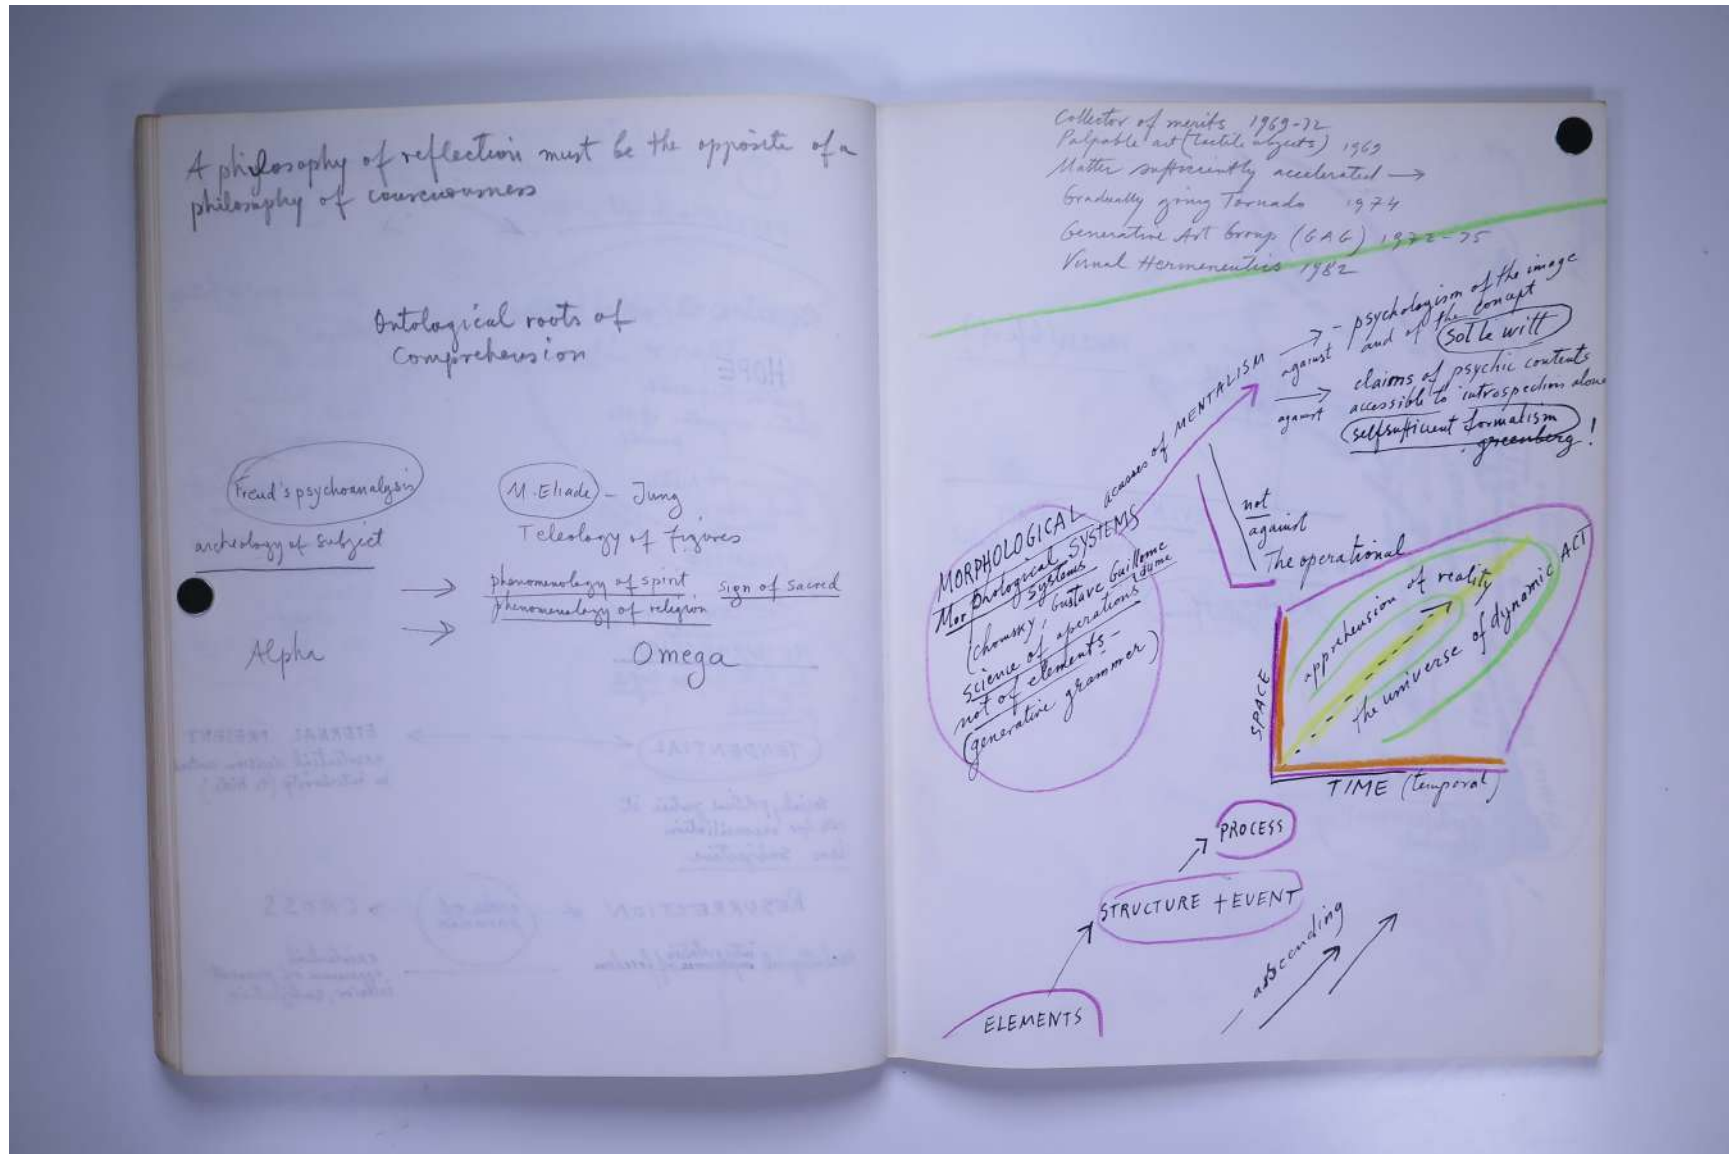 A philosophy of reflection must be the opposite of a
philosophy of consciousness
Ontological roots of
Comprehension
Freud's psychoanalysis
archeology of subject
M. Eliade - Jung
Teleology of figures
phenomenology of spirit
phenomenology of religion
sign of sacred
Alpha
Omega
Collector of merits 1969-72
Palpable art (tactile objects) 1969
Matter sufficiently accelerated →
Gradually going Tornado 1974
Generative Art Group (GAG) 1972-75
Visual Hermeneutics 1982
MORPHOLOGICAL SYSTEMS
Morphological
systems
(chomsky, Gustave Guillome
science of operations
not of elements -
(generative grammer)
of MENTALISM
→ - psychologism of the image
against and of the concept
Sol le witt
→ claims of psychic contents
against accessible to introspection alone
selfsufficient formalism
greenberg!
not
against
The operational
apprehension of reality
the universe of dynamic ACT
SPACE
TIME (temporal)
PROCESS
STRUCTURE + EVENT
ELEMENTS